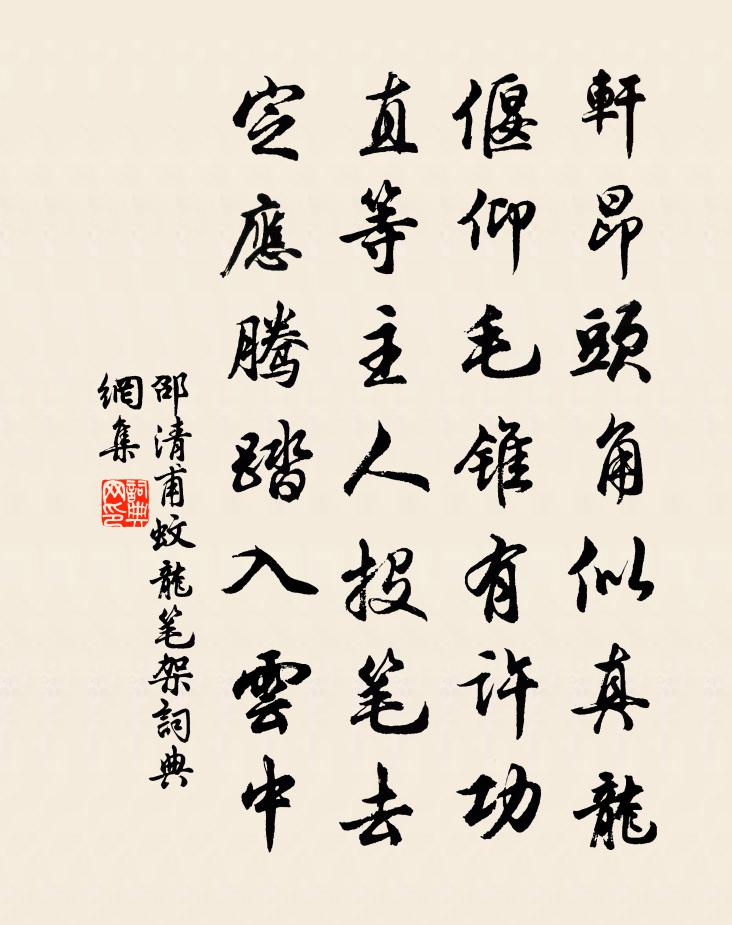 軒昂頭角似真龍
偃仰毛錐有許功
直等主人投笔去
定應騰踏入雲中
邵清甫蚊龍笔架詞典
網集
詞典
网印